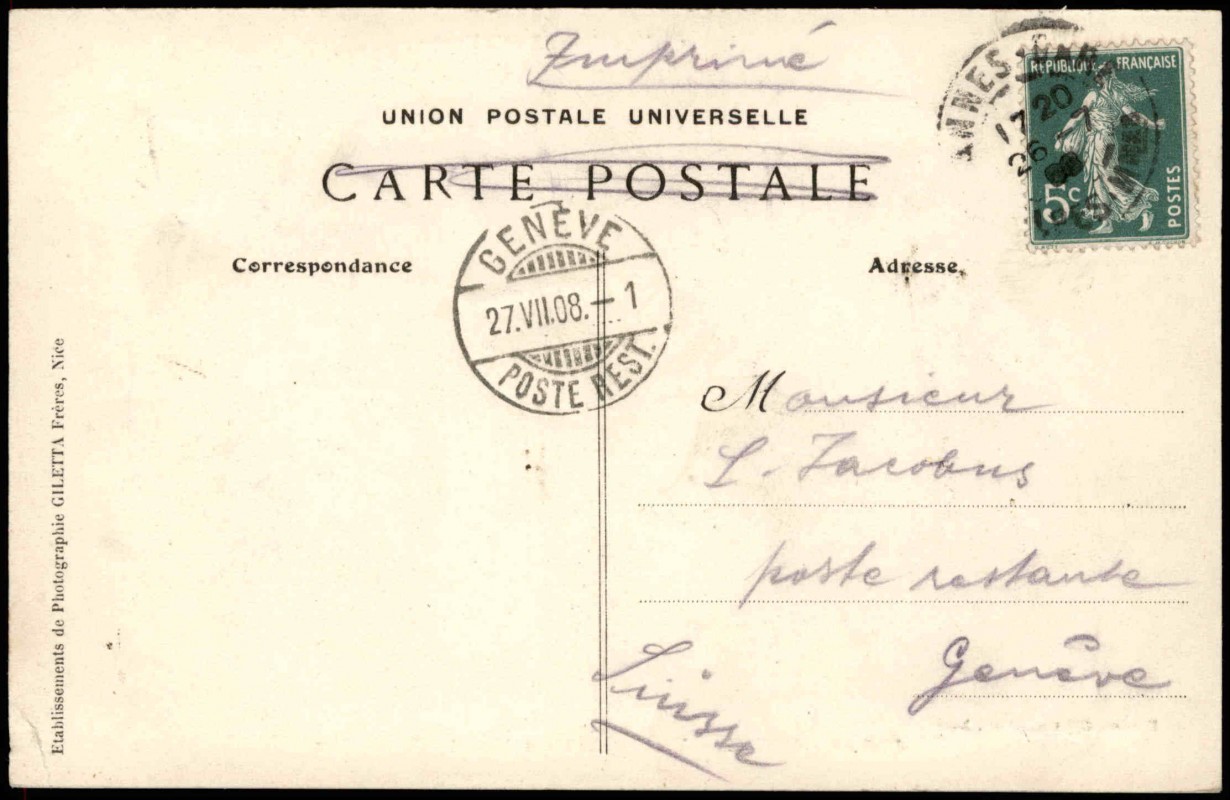 Imprimé
UNION POSTALE UNIVERSELLE
CARTE POSTALE
REPUBLIQUE FRANÇAISE
5c
POSTES
17 20
26 - 7
08
GENÈVE
27.VII.08. - 1
POSTE REST.
Correspondance
Adresse.
Monsieur
L. Jacobus
poste restante
Genève
Suisse
Etablissements de Photographie GILETTA Frères, Nice